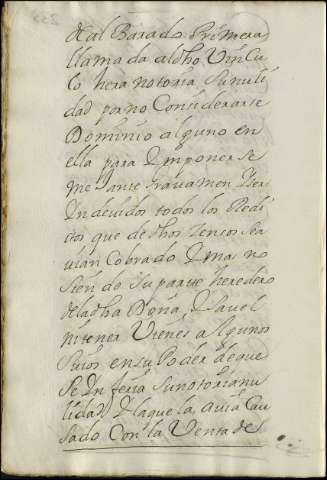 de al Barado Primera
llamada al dho Vincu
lo hera notoria su nuli
dad por no Considerarse
Dominio alguno en
ella para Imponer se
mejante Gravamen y ser
Indevidos todos los Redi
ctos que de dhos zensos sea
vian Cobrado Y mas no
siendo su parte heredero
de la dha Doña Isavel
ni tener Vienes algunos
suios en su Poder de que
se Inferia su notoria nu
lidad Y la que la avia Cau
sado Con la Venta de